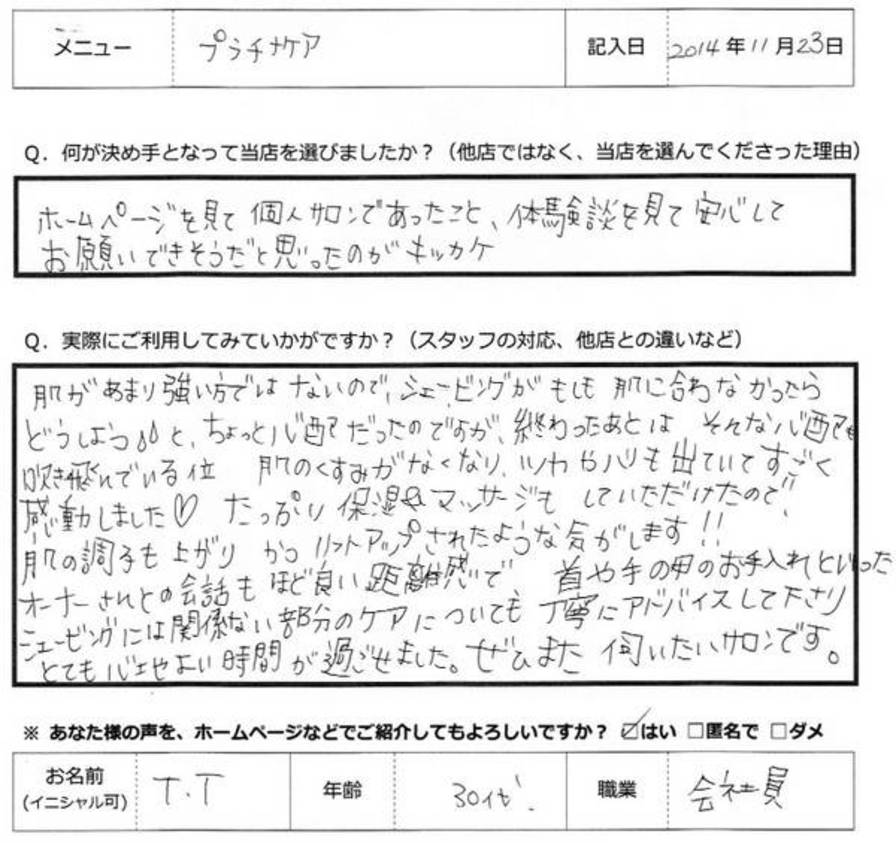 メニュー プラチナケア 記入日 2014年11月23日
Q．何が決め手となって当店を選びましたか？（他店ではなく、当店を選んでくださった理由）
ホームページを見て個人サロンであったこと、体験談を見て安心して
お願いできそうだと思ったのがキッカケ
Q．実際にご利用してみていかがですか？（スタッフの対応、他店との違いなど）
肌があまり強い方ではないので、シェービングがもしも肌に合わなかったら
どうしようと、ちょっと心配だったのですが、終わったあとは そんな心配も
吹き飛んでいる位 肌のくすみがなくなり、ツヤやハリも出ていてすごく
感動しました♡ たっぷり保湿やマッサージもしていただけたので、
肌の調子も上がり かつリフトアップされたような気がします!!
オーナーさんとの会話もほど良い距離感で 首や手の甲のお手入れといった
シェービングには関係ない部分のケアについても丁寧にアドバイスして下さり
とても心地よい時間が過ごせました。ぜひまた伺いたいサロンです。
※ あなた様の声を、ホームページなどでご紹介してもよろしいですか？ ☑はい □匿名で □ダメ
お名前 T.T 年齢 30代 職業 会社員
(イニシャル可)